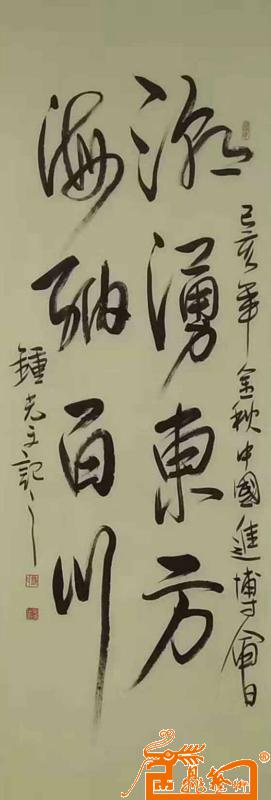 潮湧東方
海納百川
己亥年金秋中國進博會日
鍾光文記